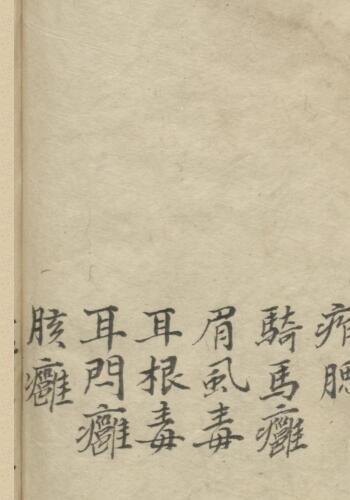 痄腮
騎馬癰
眉風毒
耳根毒
耳門癰
胲癰